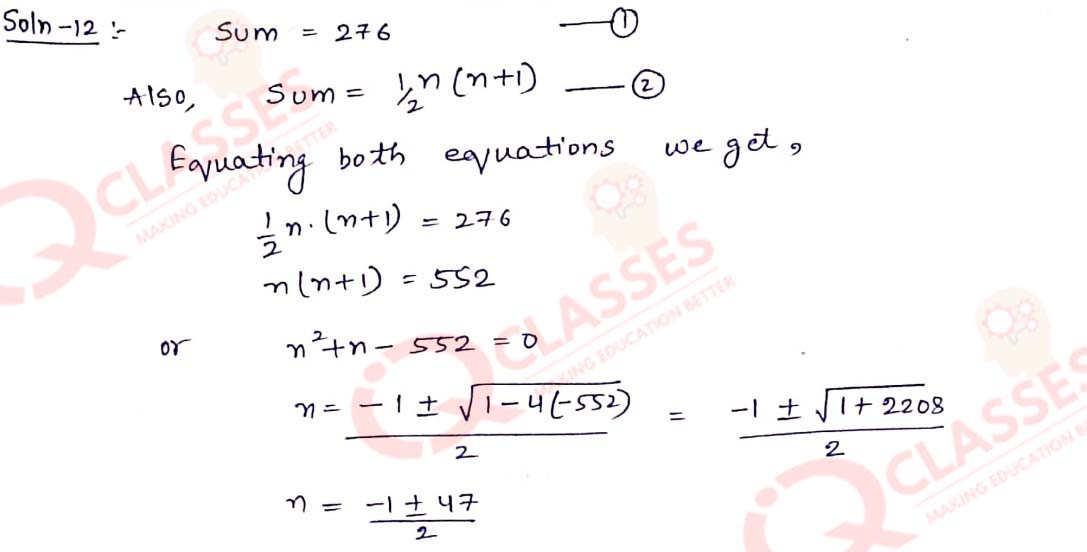 Soln-12 :- Sum = 276 —①
Also, Sum = 1/2 n (n+1) —②
Equating both equations we get,
1/2 n. (n+1) = 276
n(n+1) = 552
or n²+n- 552 = 0
n = -1 ± √(1-4(-552)) / 2 = -1 ± √(1+2208) / 2
n = -1 ± 47 / 2
CLASSES
MAKING EDUCATION BETTER
CLASSES
MAKING EDUCATION BETTER
CLASSES
MAKING EDUCATION B